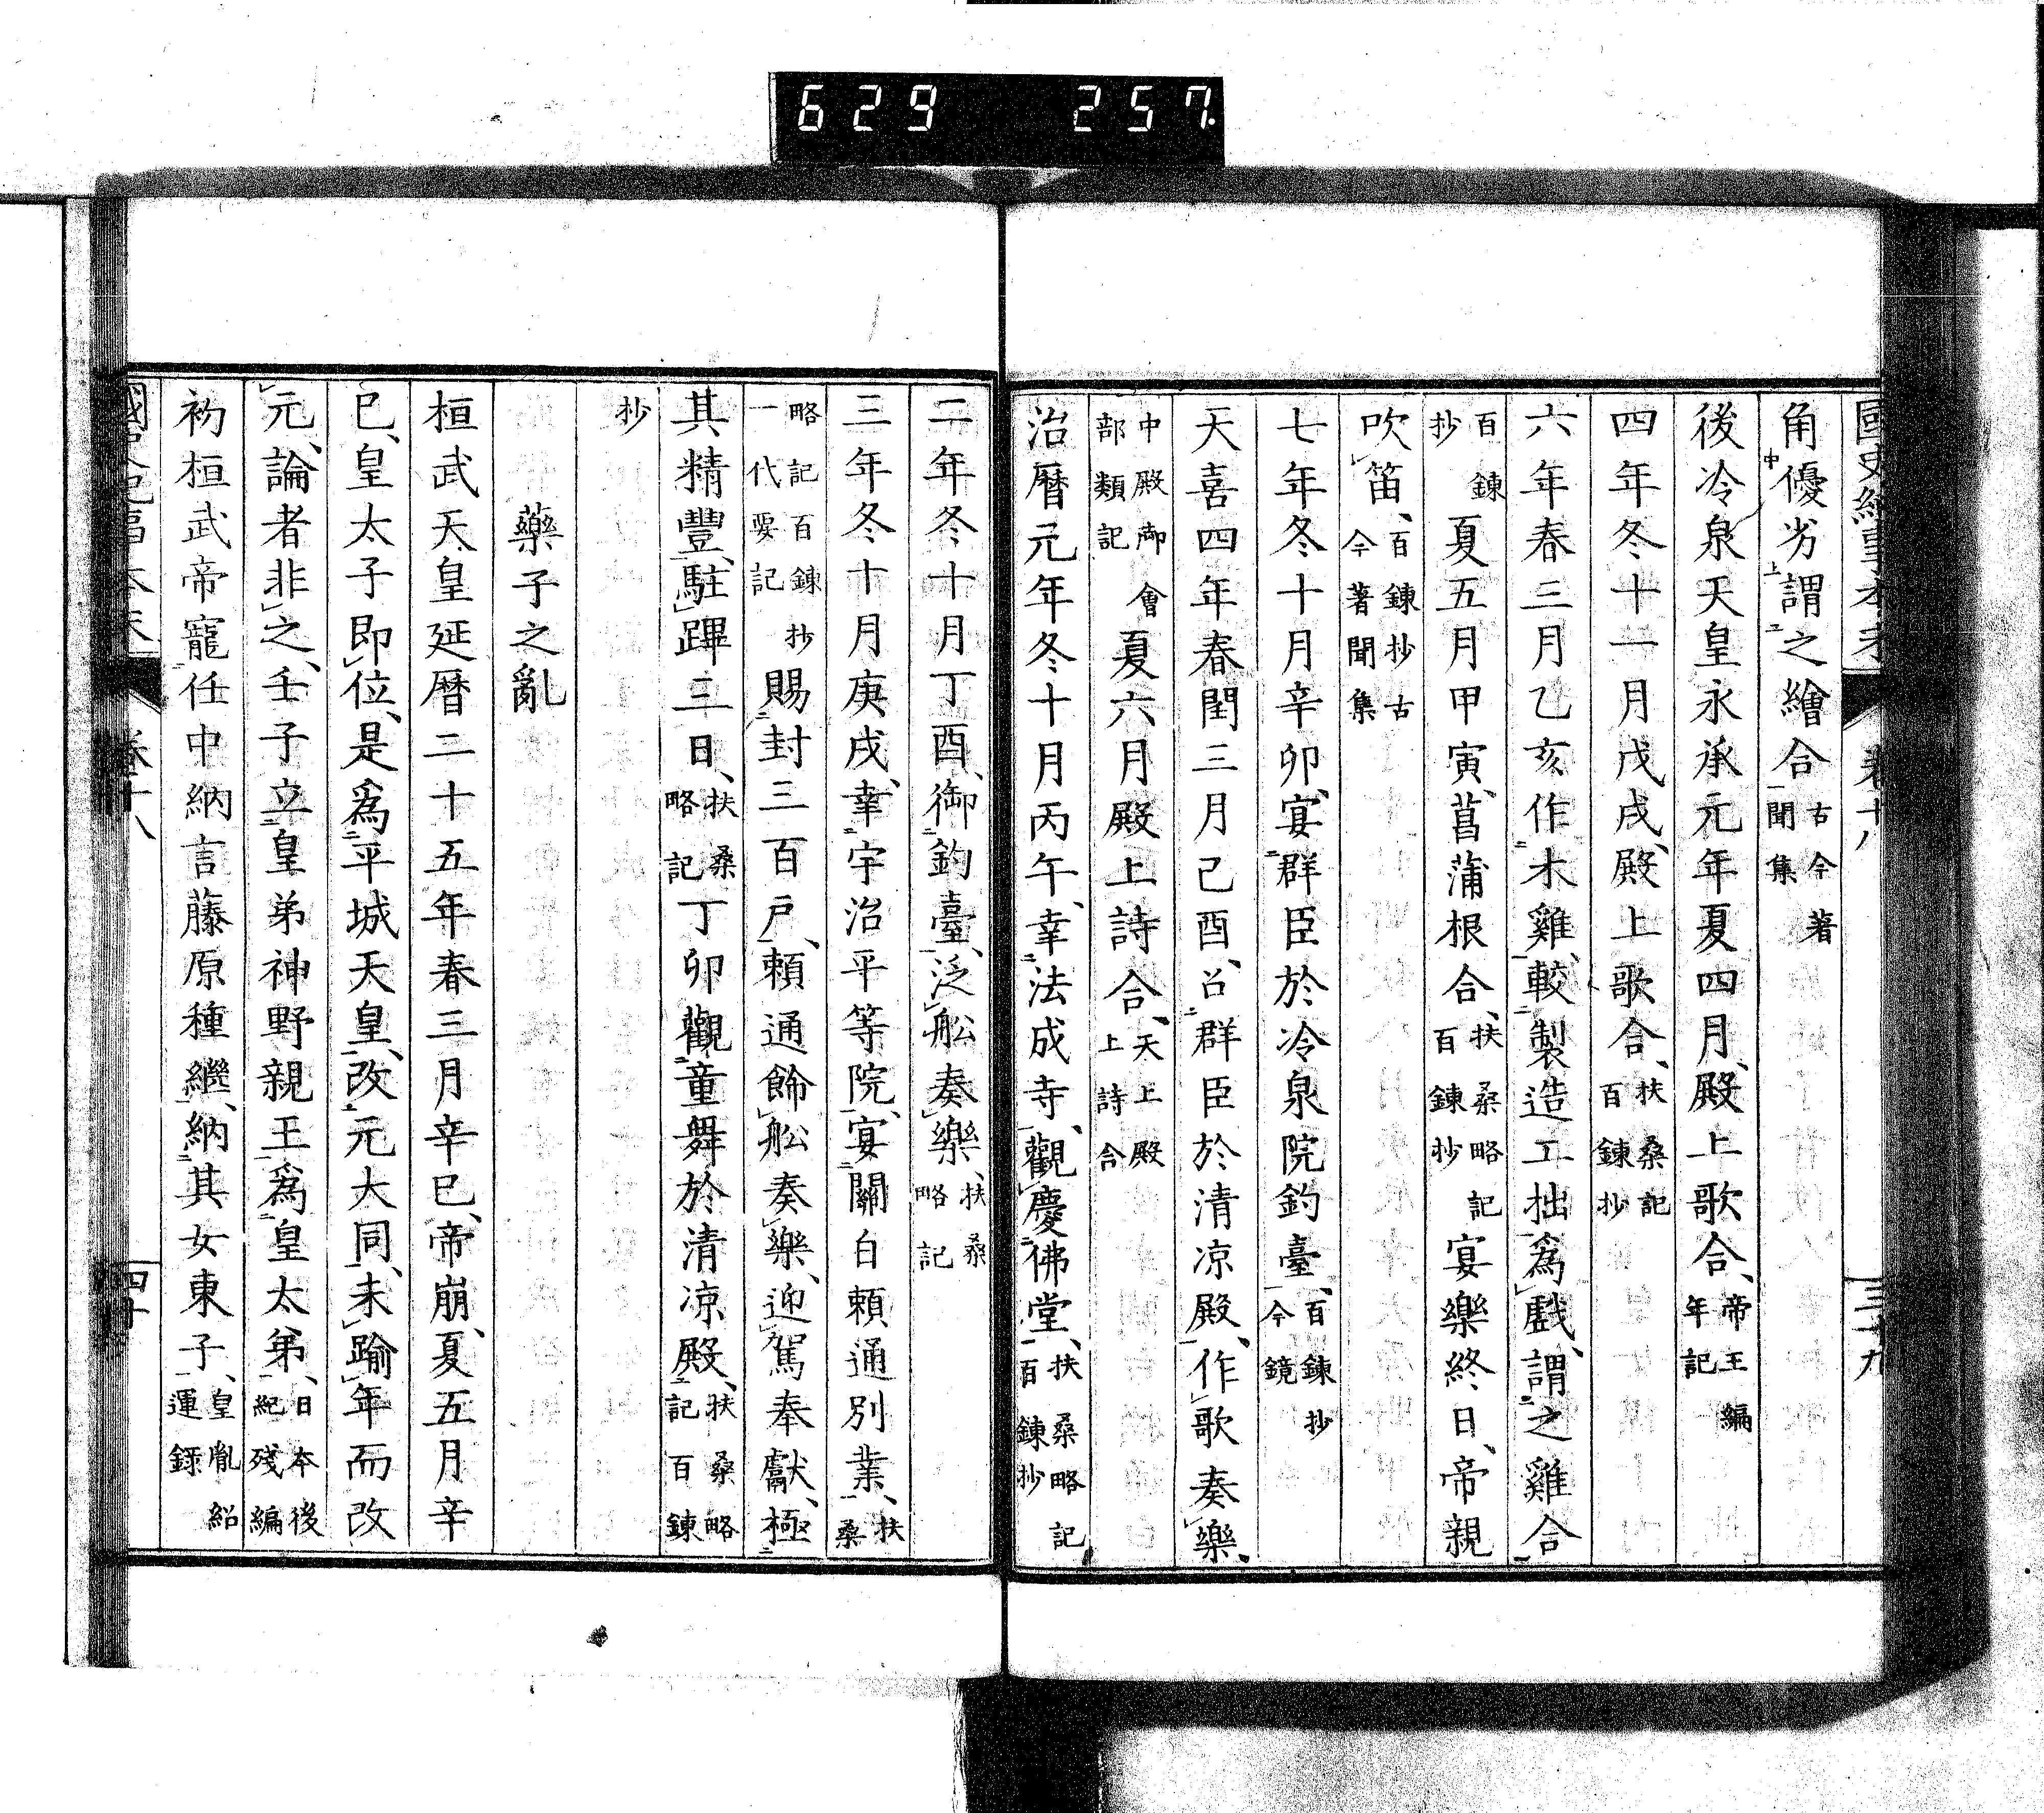 629 257
國史紀事本末 卷十八 三十九
角優劣謂之繪合古今著聞集
後冷泉天皇永承元年夏四月、殿上歌合、帝王編年記
四年冬十一月戊戌、殿上歌合、扶桑記百鍊抄
六年春三月乙亥作木雞、較製造工拙爲戲、謂之雞合
百鍊抄夏五月甲寅、菖蒲根合、扶桑略記百鍊抄宴樂終日、帝親
吹笛、百鍊抄古今著聞集
七年冬十月辛卯、宴群臣於冷泉院釣臺、百鍊抄今鏡
天喜四年春閏三月己酉、召群臣於清凉殿、作歌奏樂、
中殿御會部類記夏六月殿上詩合、天上殿上詩合
治曆元年冬十月丙午、幸法成寺、觀慶佛堂、扶桑略記百鍊抄
二年冬十月丁酉、御釣臺、泛舩奏樂、扶桑略記
三年冬十月庚戌、幸宇治平等院、宴關白賴通別業、扶桑
略記百鍊抄一代要記賜封三百戶、賴通餙舩奏樂、迎駕奉獻、極
其精豐、駐蹕三日、扶桑略記丁卯觀童舞於清凉殿、扶桑略記百鍊
抄
藥子之亂
桓武天皇延曆二十五年春三月辛巳、帝崩、夏五月辛
巳、皇太子即位、是爲平城天皇、改元大同、未踰年而改
元、論者非之、壬子立皇弟神野親王爲皇太弟、日本後紀殘編
初桓武帝寵任中納言藤原種繼、納其女東子、皇胤紹運錄
卷十八 四十